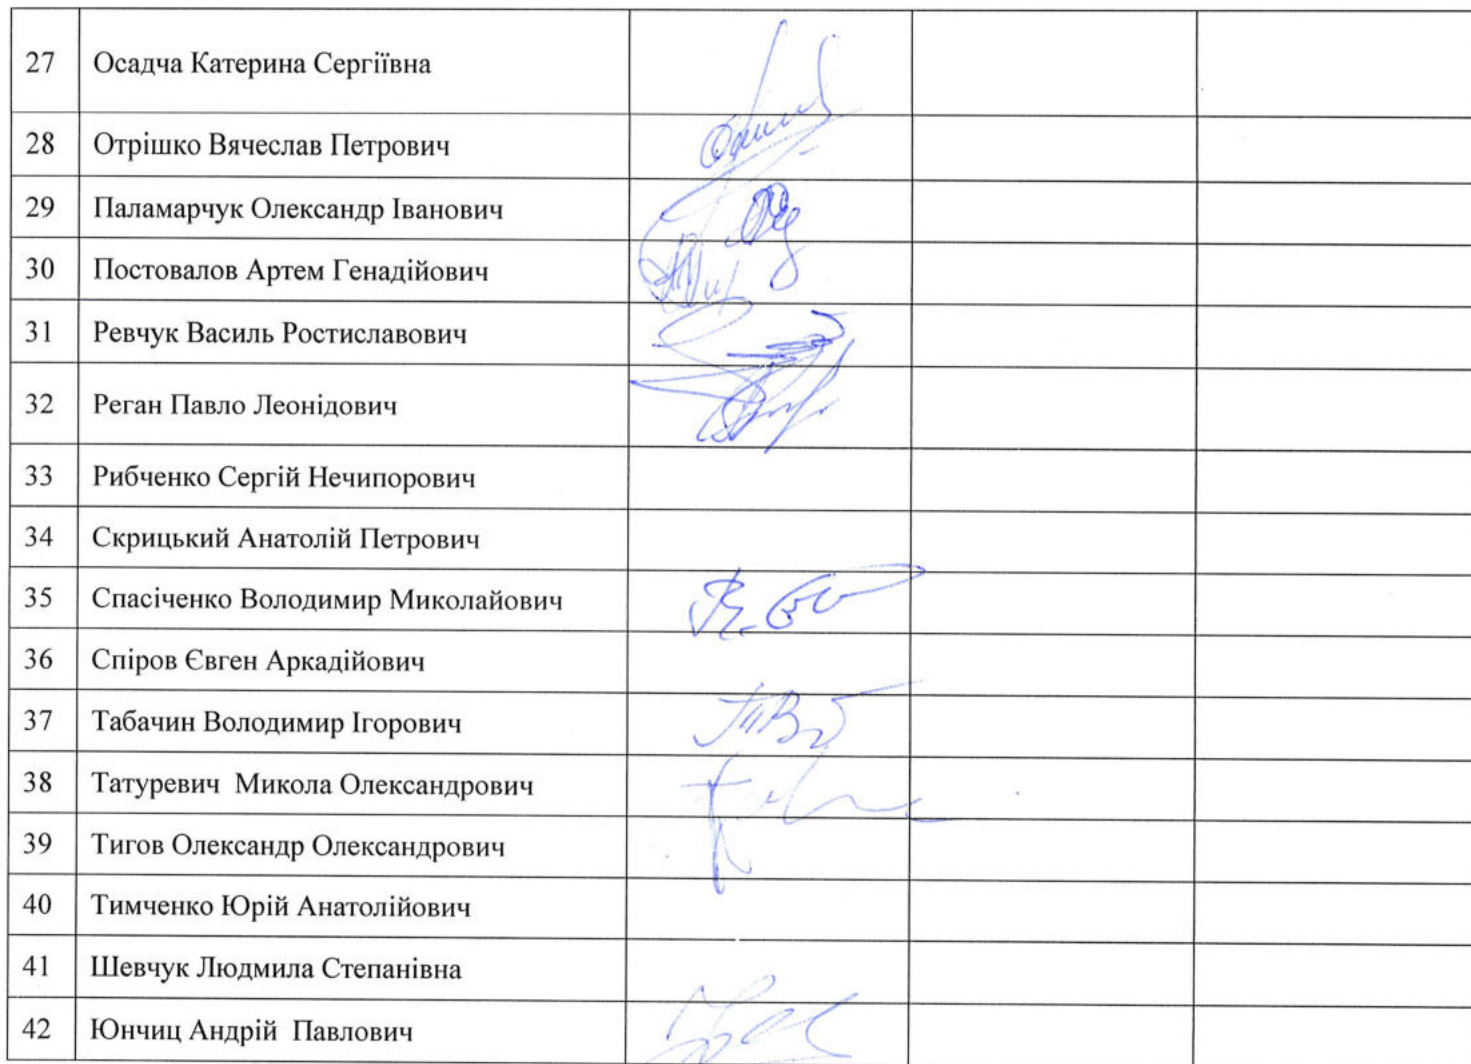 27 Осадча Катерина Сергіївна
28 Отрішко Вячеслав Петрович
29 Паламарчук Олександр Іванович
30 Постовалов Артем Генадійович
31 Ревчук Василь Ростиславович
32 Реган Павло Леонідович
33 Рибченко Сергій Нечипорович
34 Скрицький Анатолій Петрович
35 Спасіченко Володимир Миколайович
36 Спіров Євген Аркадійович
37 Табачин Володимир Ігорович
38 Татуревич Микола Олександрович
39 Тигов Олександр Олександрович
40 Тимченко Юрій Анатолійович
41 Шевчук Людмила Степанівна
42 Юнчиц Андрій Павлович